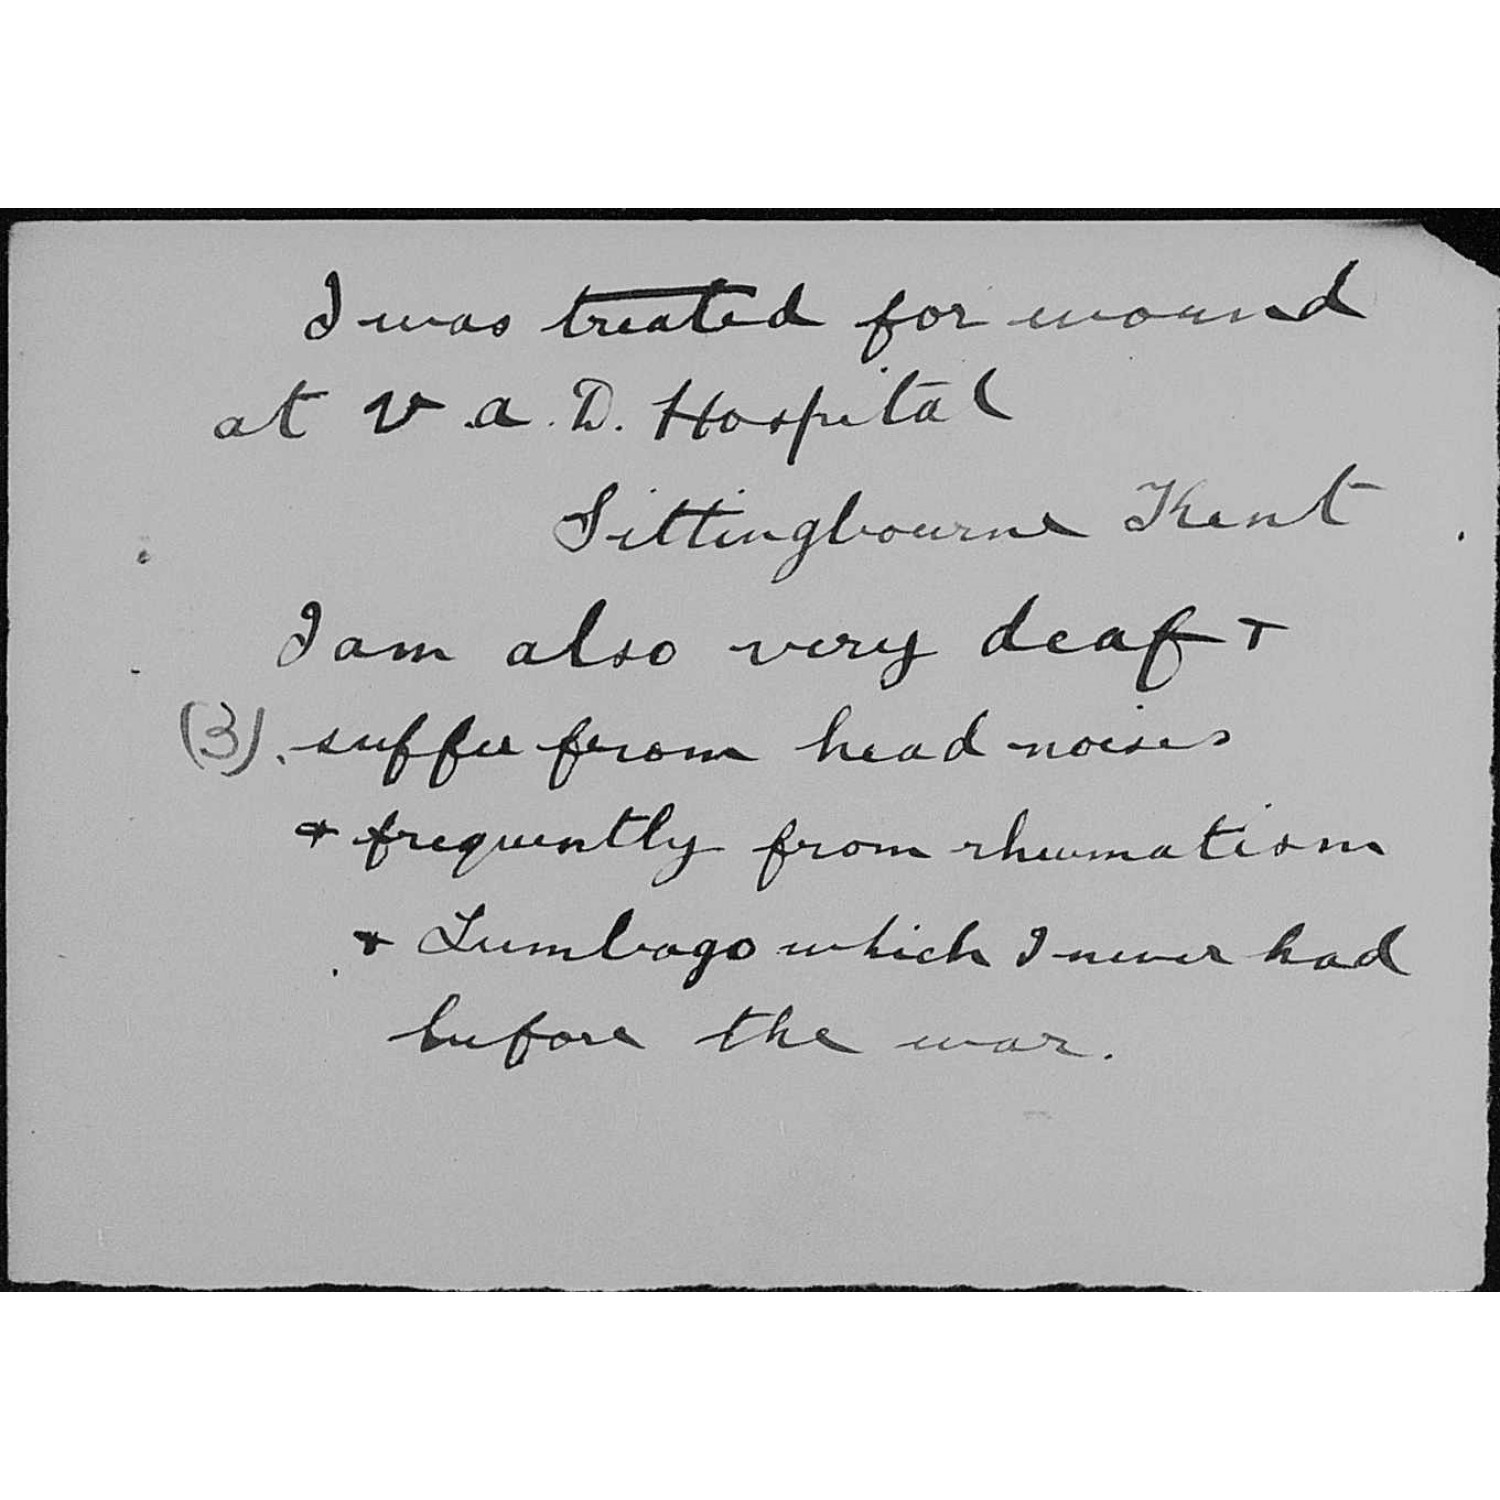 I was treated for wound
at V.A.D. Hospital
Sittingbourne Kent
I am also very deaf +
(3). suffer from head noises
+ frequently from rheumatism
+ Lumbago which I never had
before the war.